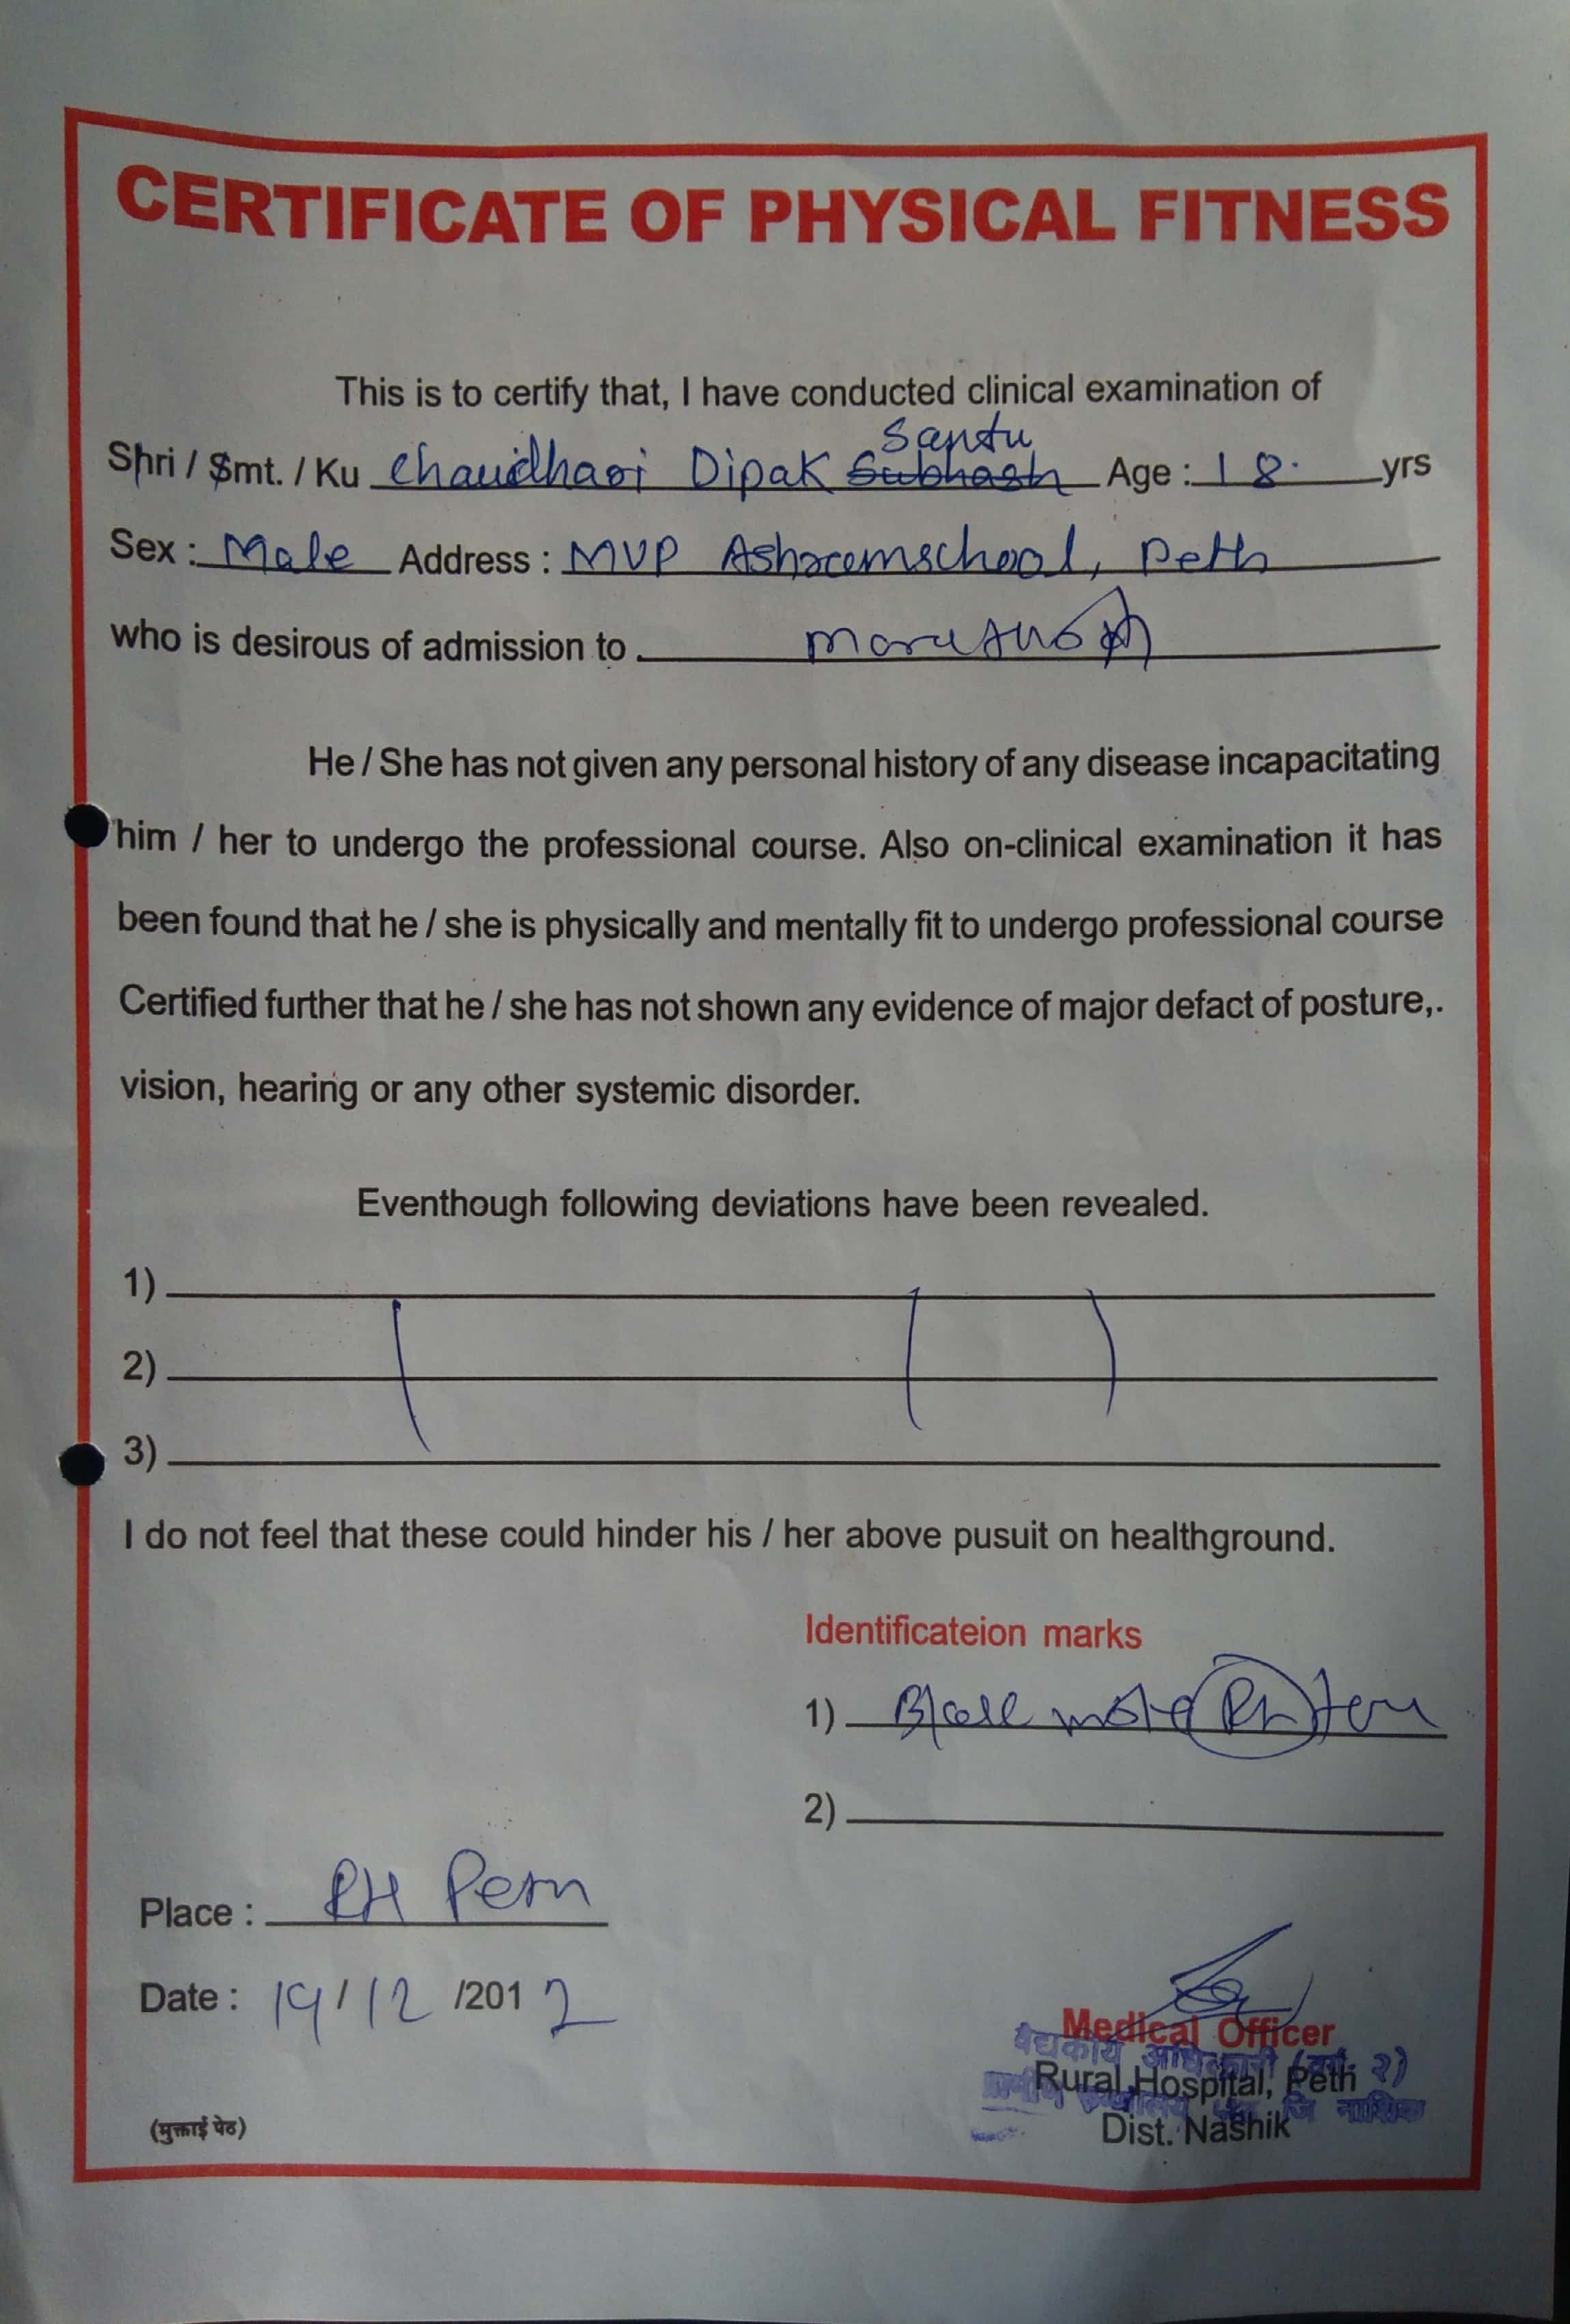 CERTIFICATE OF PHYSICAL FITNESS
This is to certify that, I have conducted clinical examination of
Santu
Shri / Smt. / Ku Chaudhari Dipak Subhash Age : 18. yrs
Sex : Male Address : MVP Ashramschool, Peth
who is desirous of admission to
He / She has not given any personal history of any disease incapacitating
him / her to undergo the professional course. Also on-clinical examination it has
been found that he / she is physically and mentally fit to undergo professional course
Certified further that he / she has not shown any evidence of major defact of posture,.
vision, hearing or any other systemic disorder.
Eventhough following deviations have been revealed.
1)
2)
3)
I do not feel that these could hinder his / her above pusuit on healthground.
Identificateion marks
1)
2)
Place : RH Peth
Date : 19/12 /2012
Medical Officer
वैद्यकीय अधिकारी (वर्ग २)
Rural Hospital, Peth
जि नाशिक
Dist. Nashik
(मुक्ताई पेठ)